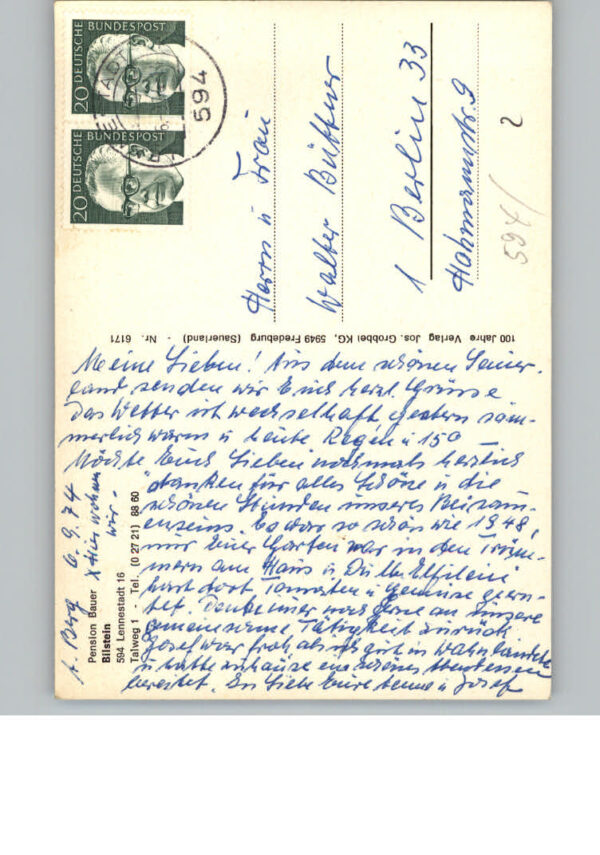 20 DEUTSCHE BUNDESPOST
20 DEUTSCHE BUNDESPOST
594
Herrn u Frau
Walter Büttner
1 Berlin 33
Hohmannstr. 9
2
594/
100 Jahre Verlag Jos. Grobbel KG, 5949 Fredeburg (Sauerland) - Nr. 6171
Pension Bauer
Bilstein
594 Lennestadt 16
Talweg 1 - Tel. (0 27 21) 88 60
6.9.74
x Hier wohnen
wir -
Meine Lieben! Aus dem schönen Sauer-
land senden wir Euch herzl. Grüsse
Das Wetter ist wechselhaft gestern som-
merlich warm u heute Regen u 15°
Möchte Euch Lieben nochmals herzlich
danken für alles Schöne u die
schönen Stunden unseres Beisam-
menseins. Es war so schön wie 1948,
nur Euer Garten war in den Trüm-
mern am Haus u Du lb.
hast dort Tomaten u Gemüse geern-
tet. Denke immer noch gerne an unsere
gemeinsame Tätigkeit zurück
Josef war froh, als ich gut in Wahn landete
u hatte zuhause ein schönes Abendessen
bereitet. In Liebe Eure u Josef